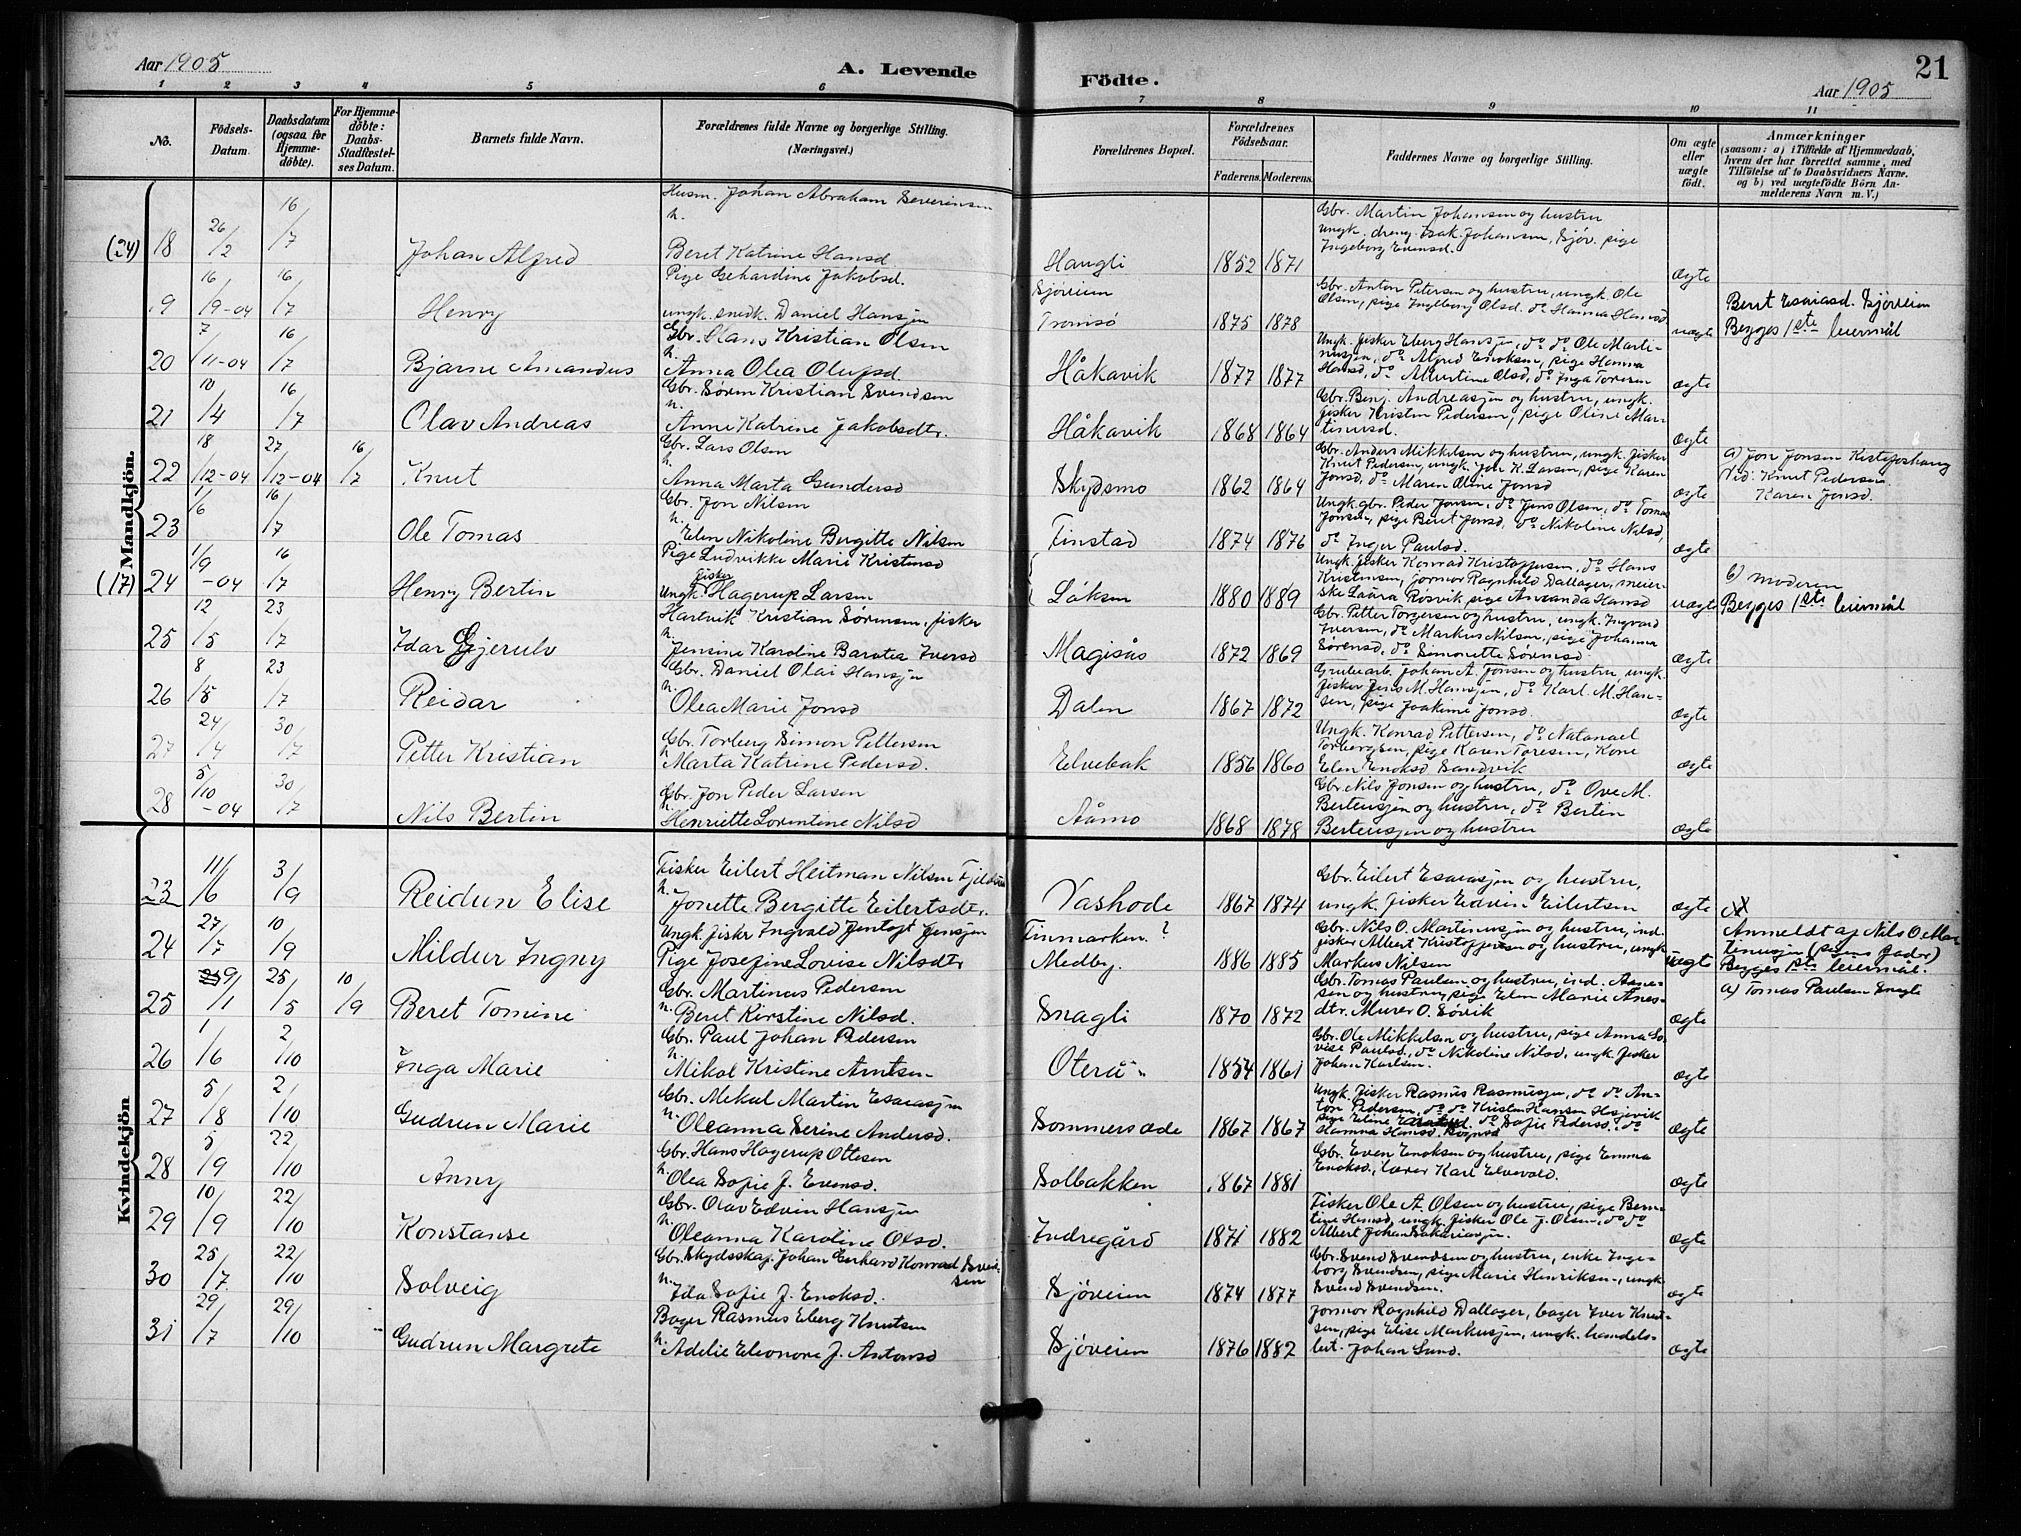 Aar 1905
A. Levende
Födte.
21
Aar 1905
1 2 3 4 5 6 7 8 9 10 11
No.
Födsels-Datum.
Daabsdatum (ogsaa for Hjemmedöbte).
For Hjemmedöbte: Daabs-Stadfæstelses Datum.
Barnets fulde Navn.
Forældrenes fulde Navne og borgerlige Stilling. (Næringsvei.)
Forældrenes Bopæl.
Forældrenes Födselsaar.
Faderens. Moderens.
Faddernes Navne og borgerlige Stilling.
Om ægte eller uægte födt.
Anmærkninger
(saasom: a) i Tilfælde af Hjemmedaab, hvem der har forrettet samme, med Tilföielse af to Daabsvidners Navne. og b) ved uægtefödte Börn Anmelderens Navn m. V.)
Mandkjön.
(24) 18 26/2 16/7 Johan Alfred
Husm. Johan Abraham Severinsen
h. Beret Katrine Hansd
Haugli 1852 1871
Gbr. Martin Johansen og hustru
ungk. dreng Isak Johansen, Sjöv. pige
Ingeborg Evensd.
ægte
19 16/9-04 16/7 Henry
Pige Gehardine Jakobsd.
ungk. snedk. Daniel Hansen
Sjöveien
Tromsö 1875 1878
Gbr. Anton Petersen og hustru, ungk. Ole
Olsen, pige Ingeborg Olsd. do Hanna Hansd
uægte
Berit Esaiasd. Sjöveien
Begges 1ste leiermål
20 7/11-04 16/7 Bjarne Amandus
Gbr. Hans Kristian Olsen
h. Anna Olea Olufsd.
Håkavik 1877 1877
Ungk. fisker Eberg Hansen, do do Ole Martinusen, do Alfred Enoksen, pige Hanna
Hansd, do Albertine Olsd, do Inga Toresen
ægte
21 10/4 16/7 Olav Andreas
Gbr. Sören Kristian Svendsen
h. Anne Katrine Jakobsdtr.
Håkavik 1868 1864
Gbr. Benj. Andreassen og hustru, ungk.
fisker Kristen Pedersen, pige Oline Martinusd.
ægte
22 18/12-04 27/12-04 16/7 Knut
Gbr. Lars Olsen
h. Anna Marta Gundersd
Skydsmo 1862 1864
Gbr. Anders Mikkelsen og hustru, ungk. fisker
Knut Pedersen, ungk. Jon K. Larsen, pige Karen
Jonsd, do Maren Oline Jonsd
ægte
a) Jon Jonsen Kistefoshaug
Vid: Knut Pedersen
Karen Jonsd.
23 1/6 16/7 Ole Tomas
Gbr. Jon Nilsen
h. Elen Nikoline Bergitte Nilsen
Finstad 1874 1876
Ungk. gbr. Peder Jonsen, do Jens Olsen, do Tomas
Jonsen, pige Beret Jonsd, do Nikoline Nilsd,
do Inger Paulsd.
ægte
(17) 24 1/9-04 16/7 Henry Bertin
Pige Ludvikke Marie Kristensd
Ungk. fisker Hagerup Larsen
Löksen 1880 1889
Ungk. fisker Konrad Kristoffersen, do Hans
Kristensen, jormor Ragnhild Dallager, meierske Laura Rosvik pige Amanda Hansd
uægte
b) moderen
Begges 1ste leiermål
25 12/5 23/7 Idar Gjerulv
Hartvik Kristian Sörensen, fisker
h. Jensine Karoline Baratea Iversd
Magisås 1872 1869
Gbr. Petter Torgersen og hustru, ungk. Ingvard
Iversen, do Markus Nilsen, pige Johanna
Sörensd, do Simonette Sörensd
ægte
26 8/5 23/7 Reidar
Gbr. Daniel Olai Hansen
h. Olea Marie Jonsd
Dalen 1867 1872
Grubearb. Johan A. Jonsen og hustru, ungk.
fisker Jens M. Hansen, do Karl M. Hansen, pige Joakime Jonsd.
ægte
27 24/4 30/7 Petter Kristian
Gbr. Torberg Simon Pettersen
h. Marta Katrine Pedersd.
Elvebak 1856 1860
Ungk. Konrad Pettersen, do Natanael
Torbergsen, pige Karen Toresen, Kone
Elen Enoksd Sandvik
ægte
28 5/10-04 30/7 Nils Bertin
Gbr. Jon Peder Larsen
h. Henriette Lorentine Nilsd
Aåmo 1868 1878
Gbr. Nils Jonsen og hustru, do Ove M.
Berteussen og hustru, do Bertin
Berteussen og hustru
ægte
Kvindekjön
23 11/6 3/9 Reidun Elise
Fisker Eilert Heitman Nilsen Fjeldsen
h. Jonette Bergitte Eilertsdtr.
Vashode 1867 1874
Gbr. Eilert Esaiassen og hustru,
ungk. fisker Edvin Eilertsen
ægte
24 27/7 10/9 Mildur Ingny
Ungk. fisker Ingvald Jentoft Jensen
Pige Josefine Lovise Nilsdtr
Finmarken?
Medby. 1886 1885
Gbr. Nils O. Martinussen og hustru, ind.
fisker Albert Kristoffersen og hustru, ungk
Markus Nilsen
uægte
Anmeldt af Nils O Martinusen (pigens fader)
Begges 1ste leiermål.
25 9/1 25/5 10/9 Beret Tomine
Gbr. Martinus Pedersen
h. Beret Kirstine Nilsd.
Snagli 1870 1872
Gbr. Tomas Paulsen og hustru, ind. Arnesen og hustru, pige Elen Marie Arnesdtr. Murer O. Sövik
ægte
a) Tomas Paulsen Snagli
26 1/6 2/10 Inga Marie
Gbr. Paul Johan Pedersen
h. Mikal Kristine Arntsen
Oterå 1854 1861
Gbr. Ole Mikkelsen og hustru, pige Anna Lovise Paulsd., do Nikoline Nilsd, ungk. fisker
Johan Karlsen.
ægte
27 5/8 2/10 Gudrun Marie
Gbr. Mekal Martin Esaiassen
h. Oleanna Serine Andersd.
Sommersæde 1867 1867
Ungk. fisker Rasmus Rasmussen, do do Anton Pedersen, do do Kristen Hansen Hesjevik
pige Eline do Sofie Pedersd. do
Hanna Hansd.
ægte
28 5/9 22/10 Anny
Gbr. Hans Hagerup Ottesen
h. Olea Sofie J. Evensd.
Solbakken 1867 1881
Gbr. Even Enoksen og hustru, pige Emma
Enoksd, lærer Karl Elvevold.
ægte
29 10/9 22/10 Konstanse
Gbr. Olav Edvin Hansen
h. Oleanna Karoline Olsd.
Indregård 1871 1882
Fisker Ole A. Olsen og hustru, pige Berntine Hansd, ungk. fisker Ole J. Olsen, do do
Albert Johan Sakariassen.
ægte
30 25/7 22/10 Solveig
Gbr. Skydsskaf. Johan Gerhard Konrad Svendsen
h. Ida Sofie J. Enoksd.
Sjöveien 1874 1877
Gbr. Svend Svendsen og hustru, enke Ingeborg Svendsen, pige Marie Henriksen, ungk
Svend Svendsen.
ægte
31 29/7 29/10 Gudrun Margrete
Bager Rasmus Eberg Knutsen
h. Adelie Eleonore J. Antonsd
Sjöveien 1876 1882
Jormor Ragnhild Dallager, bager Iver Knutsen, pige Elise Markussen, ungk. handelsbet. Johan Lund.
ægte